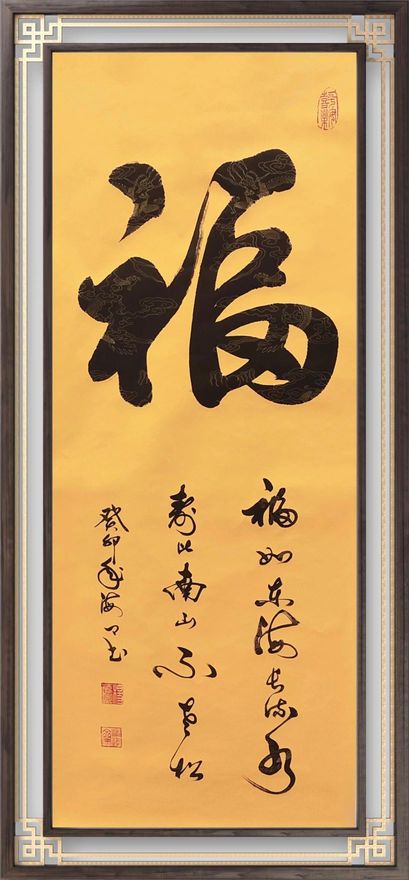 福
福如东海长流水
寿比南山不老松
癸卯年海口书